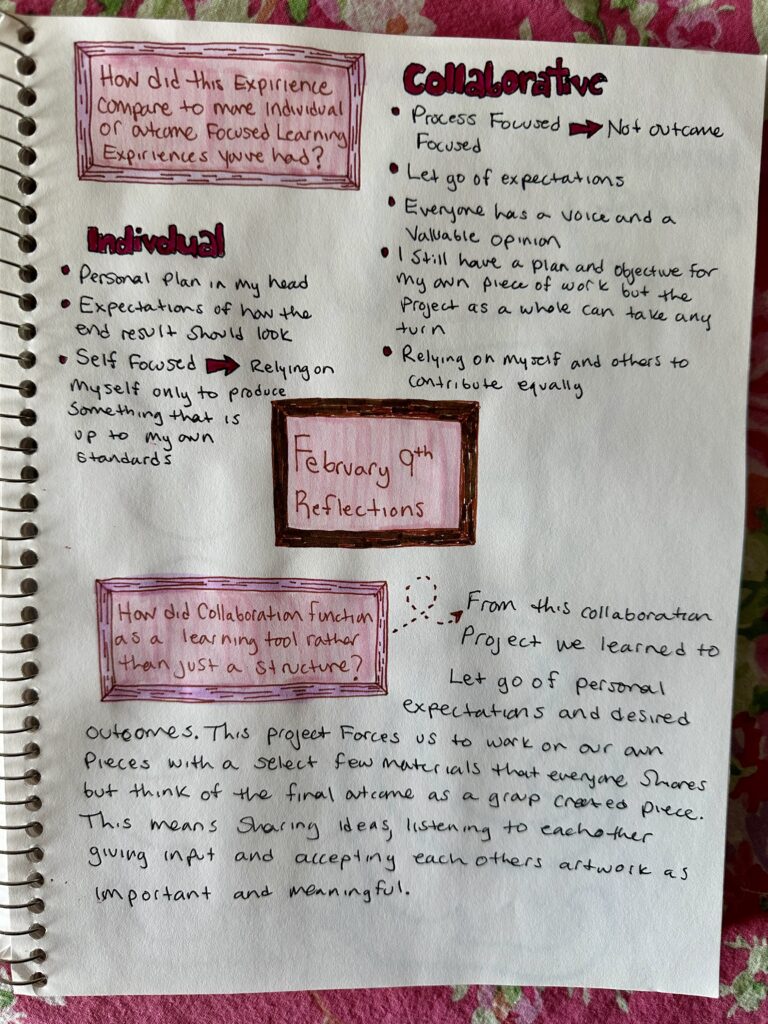 How did this Expirience
compare to more Individual
or outcome Focused Learning
Expiriences you've had?
Individual
• Personal plan in my head
• Expectations of how the
end result should look
• Self Focused ➡ Relying on
myself only to produce
something that is
up to my own
standards
Collaborative
• Process Focused ➡ Not outcome
Focused
• Let go of expectations
• Everyone has a voice and a
valuable opinion
• I still have a plan and objective for
my own piece of work but the
project as a whole can take any
turn
• Relying on myself and others to
contribute equally
February 9th
Reflections
How did Collaboration function
as a learning tool rather
than just a structure?
From this collaboration
Project we learned to
Let go of personal
expectations and desired
outcomes. This project Forces us to work on our own
Pieces with a select few materials that everyone shares
but think of the final outcome as a group created piece.
This means sharing ideas, listening to eachother
giving input and accepting each others artwork as
important and meaningful.